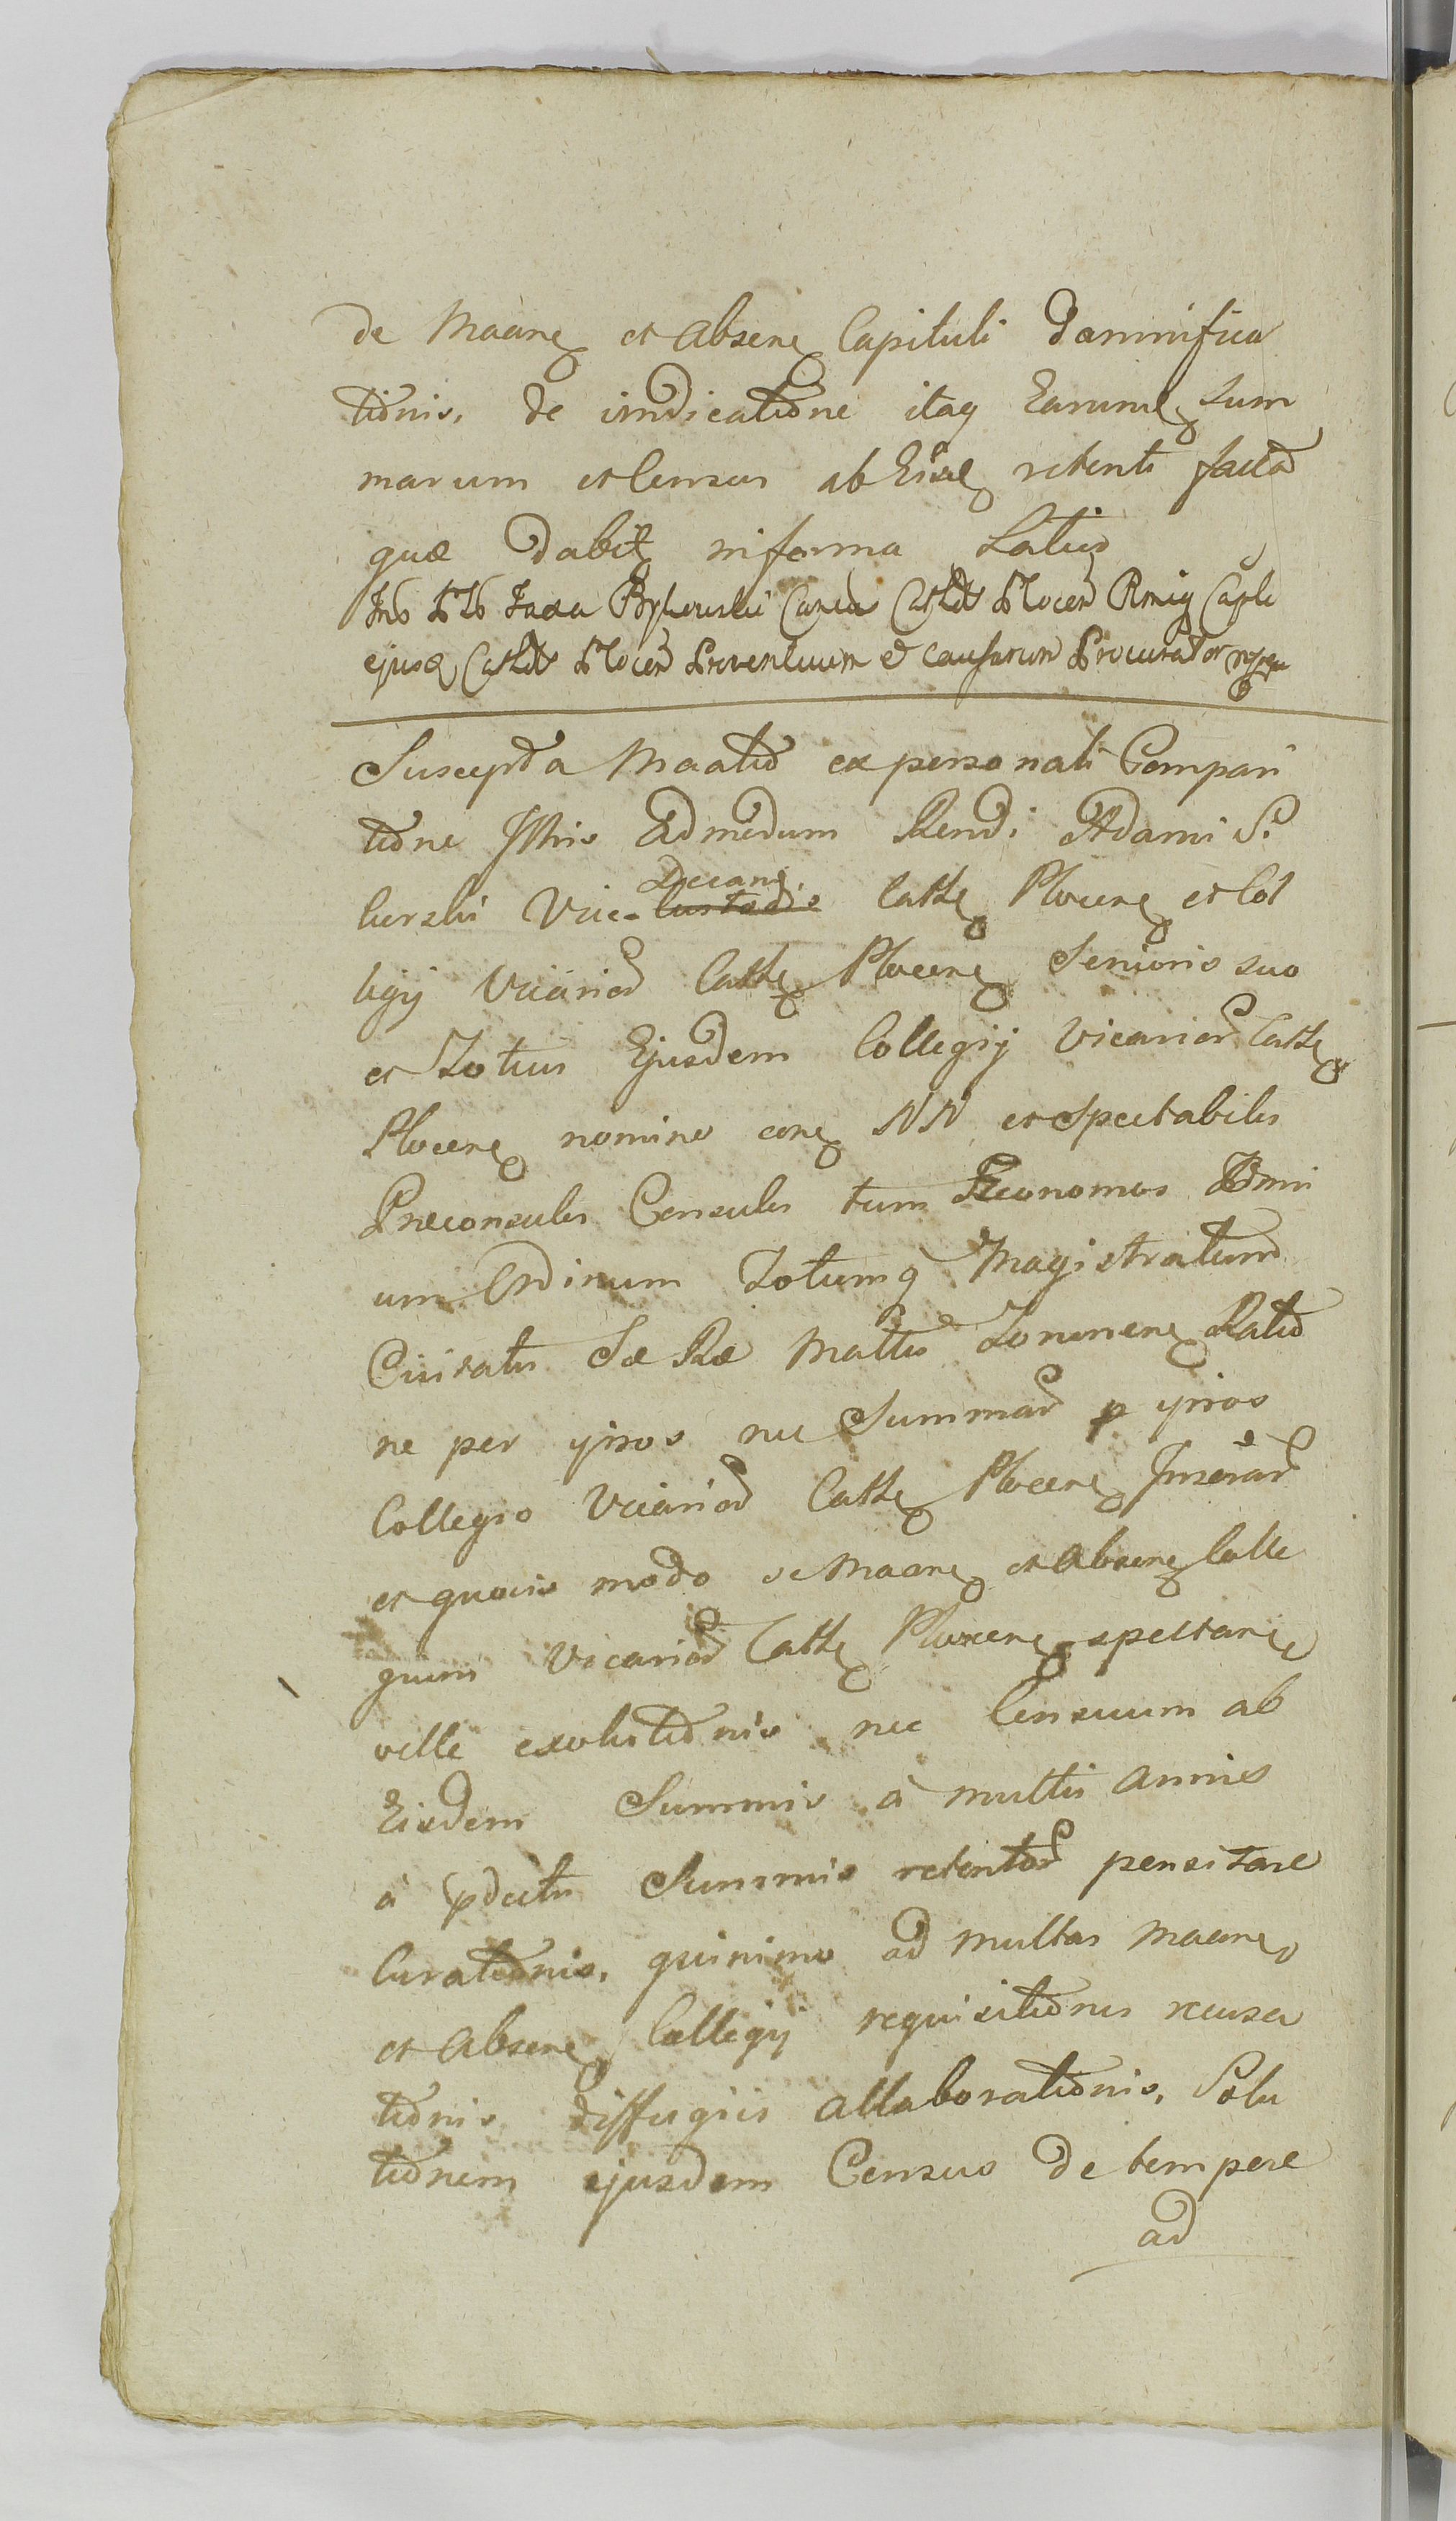 de Maane et Absene Capituli damnifica
tionis, de indicatione itaq Earund sum
marum et Census ab Eisd retenti facta
quæ dabit informa Latius
Taxa Bykowski Can Cathd Plocen Capli
ejusd Cathd Plocen Proventuum et causarum Procurator
Suscepta Maatio ex personali Compari
tione Admodum Rendi Adami S.
curski Vice-Custodis Decani Cathe Plocene et Col
legij Vicarior Cathe Plocene Senioris suo
et Totius Ejusdem Collegij Vicarior Cathe
Plocene nomine con NN et Spectabiles
Præconsules Consules tum Œconomos Omni
um Ordinum Totumq Magistratum
Civitatis Sæ Ræ Mattis Ratio
ne per ipsos nec Summar p ipsos
Collegio Vicarior Cathe Plocene Inscrar
et quovis modo se Maane et Absene Colle
gium Vicarior Cathe Plocene spectan
velle exolutionis nec Censuum ab
Eisdem Summis à multis annis
à pdictis Summis retentor pensitare
Curationis, quinimo ad multas Maane
et Absene Collegij requisitiones recusa
tionis diffugiis allaborationis, Solu
tionem ejusdem Census de tempore
ad